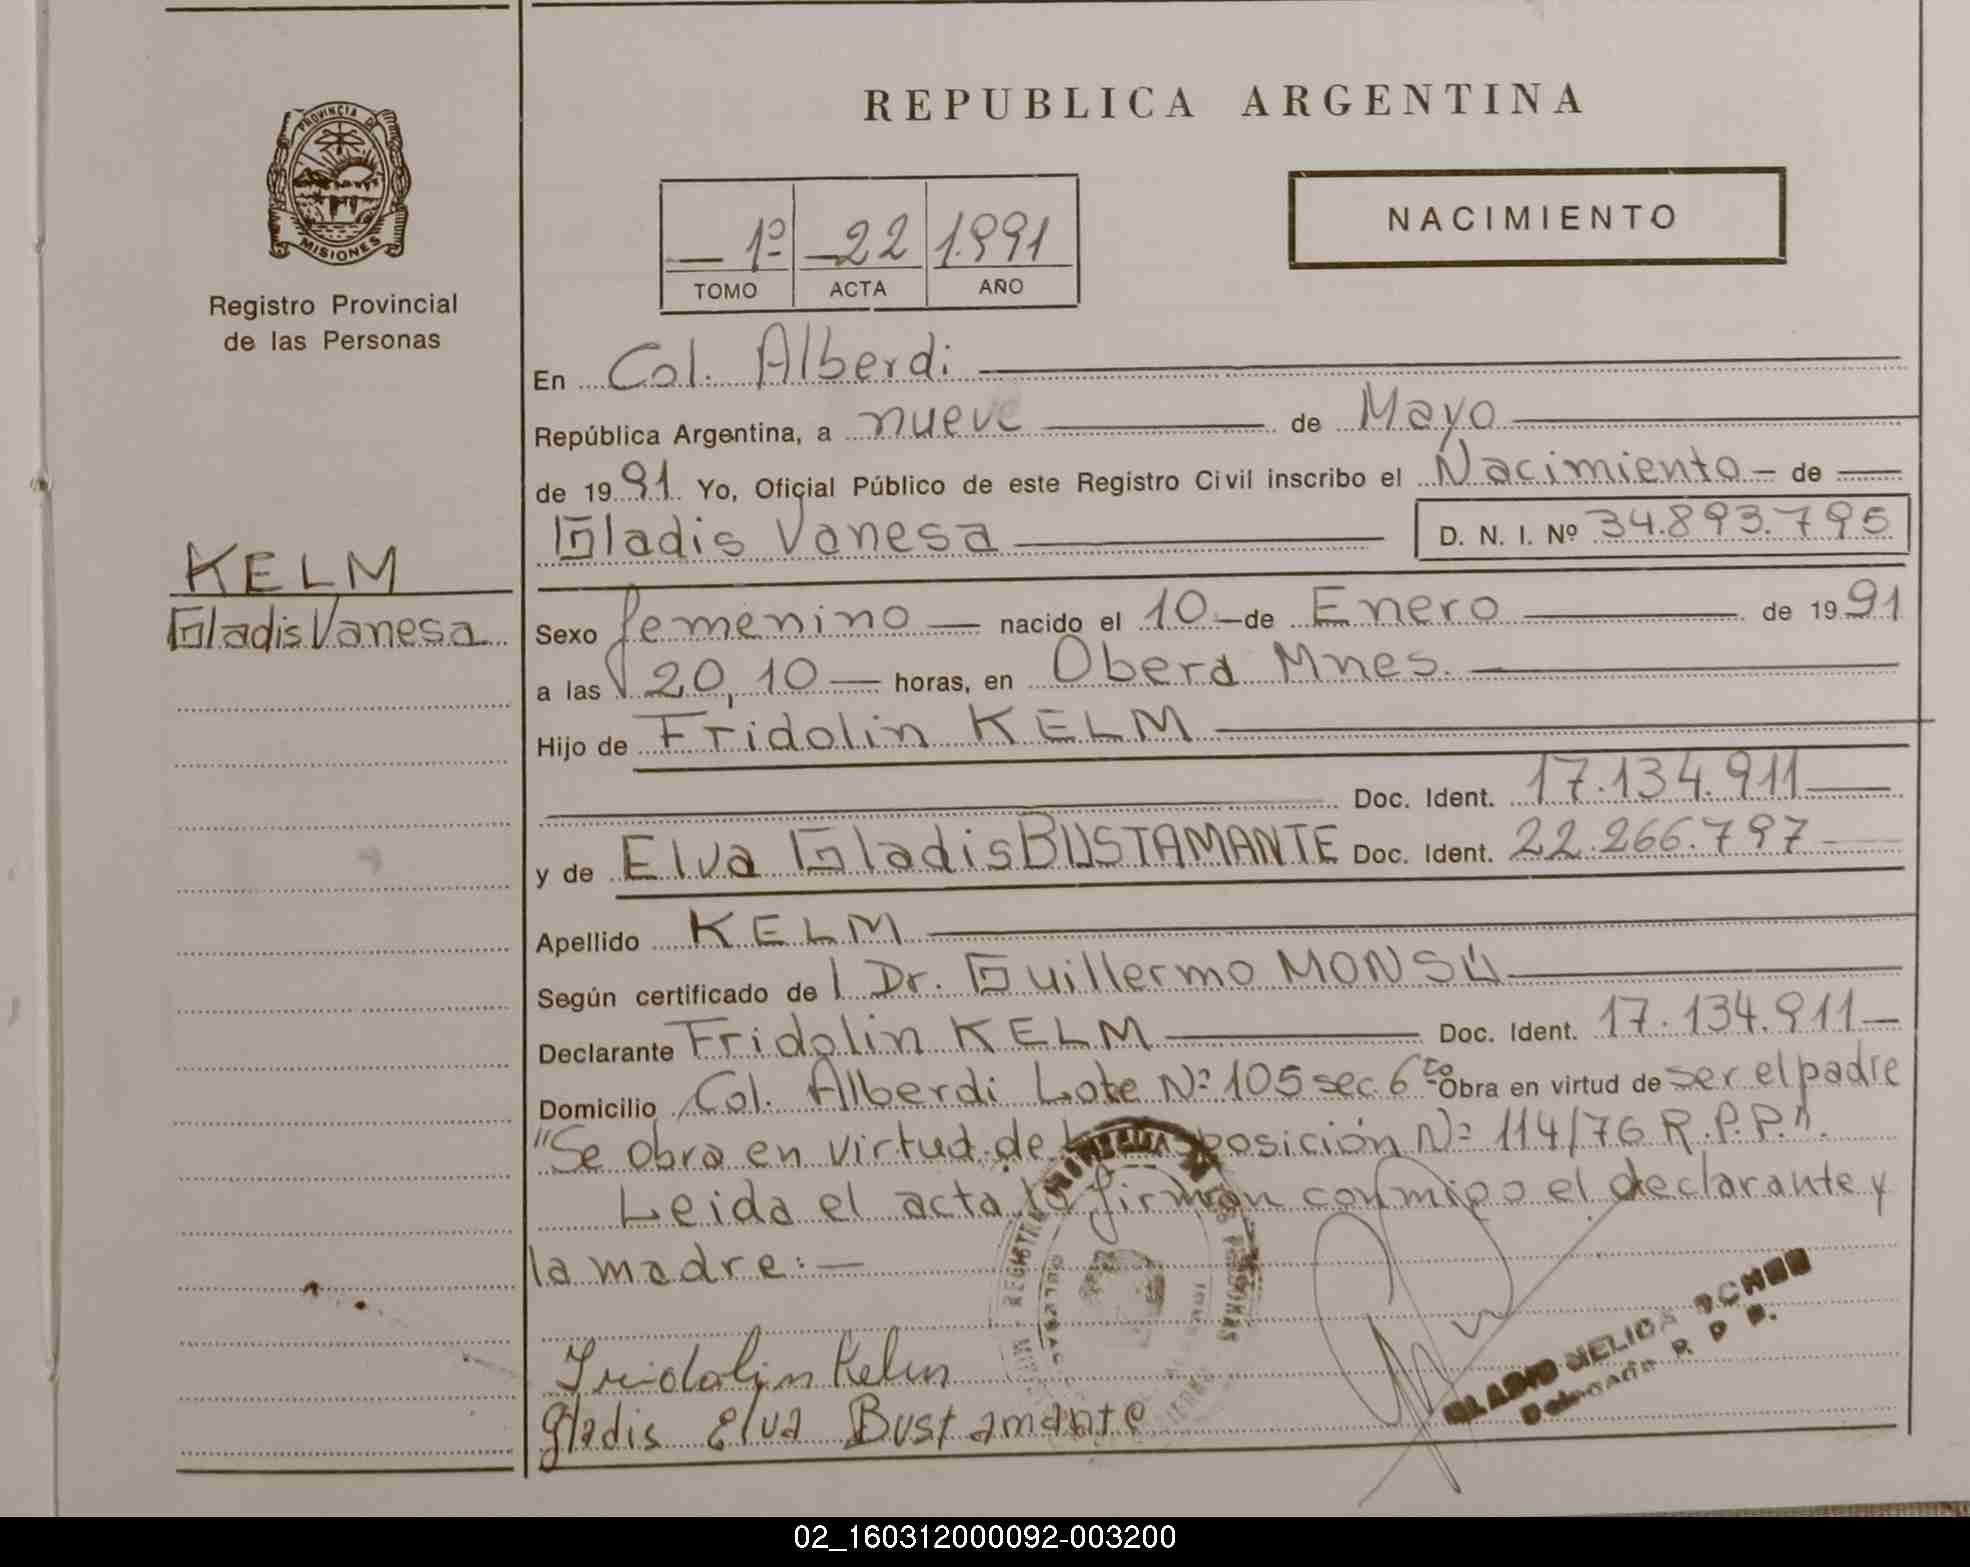 PROVINCIA DE
MISIONES
Registro Provincial
de las Personas
KELM
Gladis Vanesa
REPUBLICA ARGENTINA
1º 22 1991
TOMO ACTA AÑO
NACIMIENTO
En Col. Alberdi
República Argentina, a nueve de Mayo
de 1991 Yo, Oficial Público de este Registro Civil inscribo el Nacimiento de
Gladis Vanesa D. N. I. Nº 34.893.795
Sexo femenino nacido el 10 de Enero de 1991
a las 20,10 horas, en Oberá Mnes.
Hijo de Fridolin KELM
Doc. Ident. 17.134.911
y de Elva Gladis BUSTAMANTE Doc. Ident. 22.266.797
Apellido KELM
Según certificado de l Dr. Guillermo MONSÚ
Declarante Fridolin KELM Doc. Ident. 17.134.911
Domicilio Col. Alberdi Lote Nº 105 sec. 6ta Obra en virtud de ser el padre
"Se obra en virtud de posición Nº 114/76 R.P.P".
Leida el acta la firman conmigo el declarante y
la madre:
Fridolin Kelm
Gladis Elva Bustamante
R P P.
02_160312000092-003200